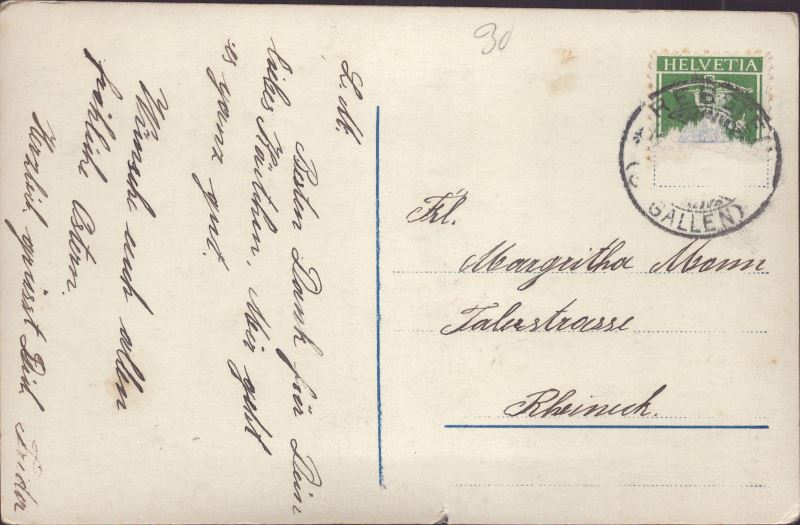 30
HELVETIA
GALLEN)
L. M.
Besten Dank für Dein
liebes Kärtchen. Mir geht
es ganz gut.
Wünsche euch allen
fröhliche Ostern.
Herzlich grüsst Dich Frida
Frl.
Margritha Mann
Talerstrasse
Rheineck.